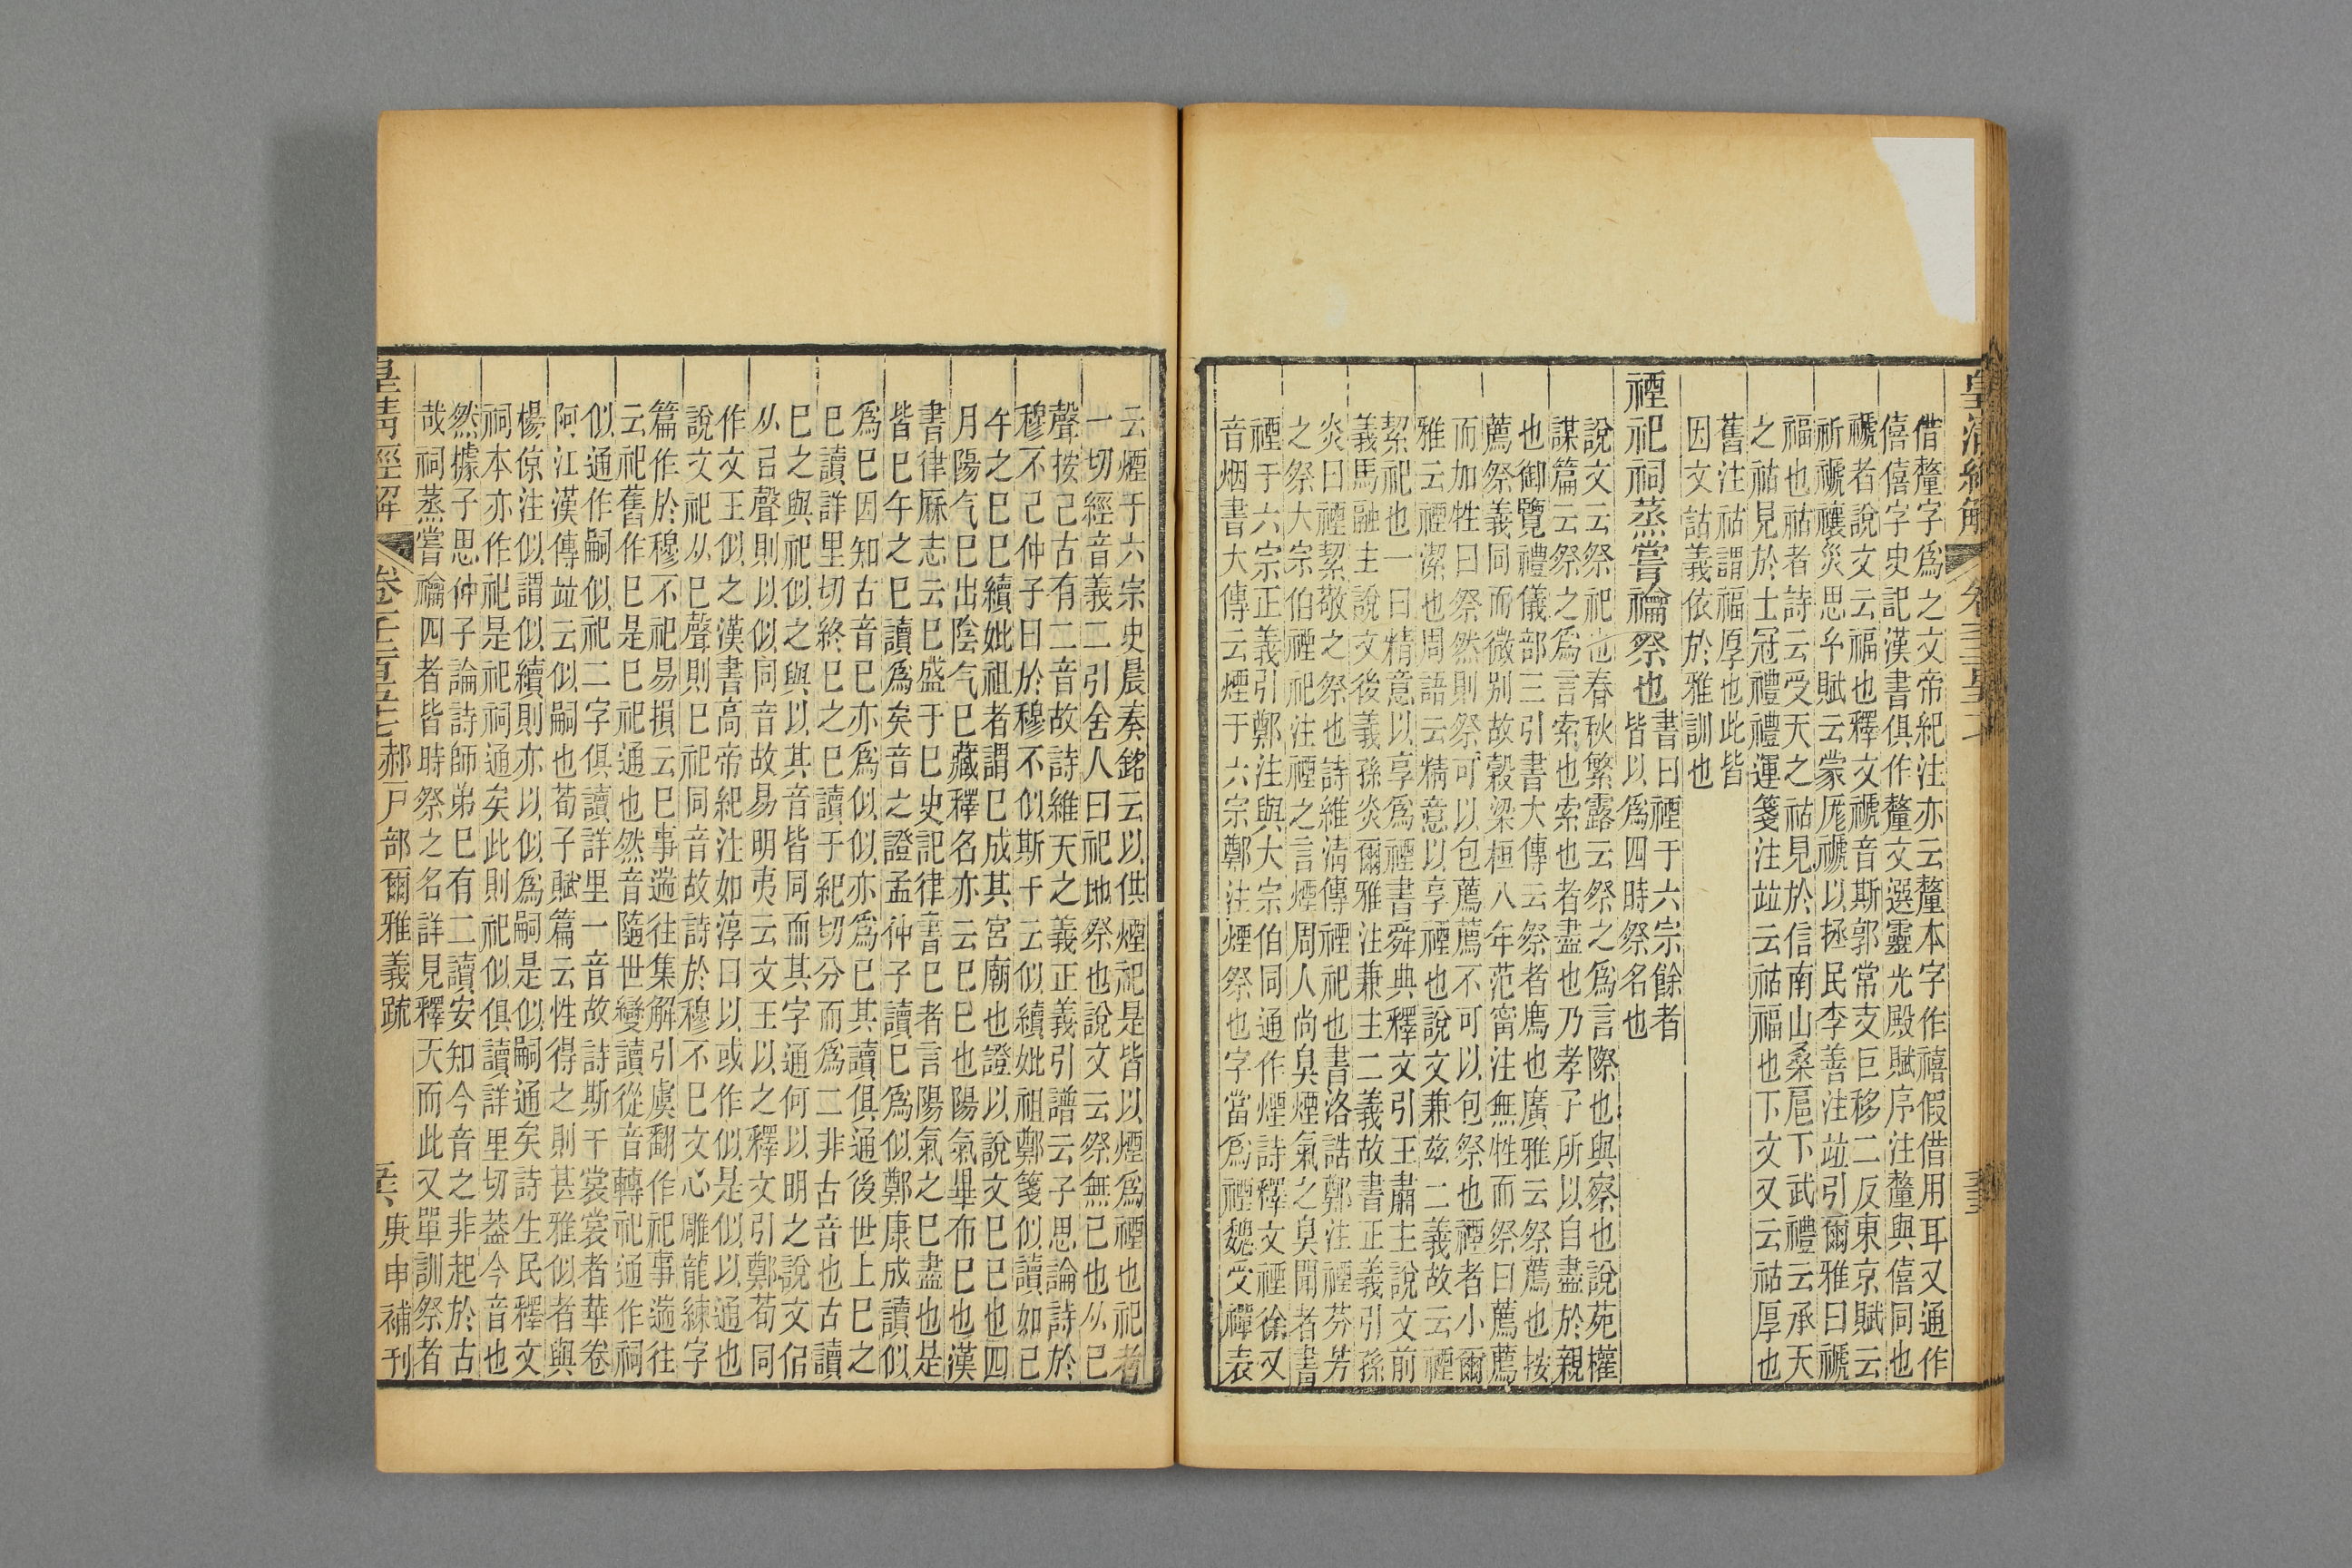 皇清經解
借釐字為之文帝紀注亦云釐本字作禧假借用耳又通作
僖僖字史記漢書俱作釐文選靈光殿賦序注釐與僖同也
禠者說文云福也釋文禠音斯郭常支巨移二反東京賦云
祈禠禳災思乎賦云蒙厖禠以拯民李善注竝引爾雅曰禠
福也祜者詩云受天之祜見於信南山桑扈下武禮云承天
之祜見於士冠禮禮運箋注竝云祜福也下文又云祜厚也
舊注祜謂福厚也此皆
因文詁義依於雅訓也
禋祀祠蒸嘗禴祭也
書曰禋于六宗餘者
皆以為四時祭名也
說文云祭祀也春秋繁露云祭之為言際也與察也說苑權
謀篇云祭之為言索也索也者盡也乃孝子所以自盡於親
也御覽禮儀部三引書大傳云祭者薦也廣雅云祭薦也按
薦祭義同而微別故穀梁桓八年范甯注無牲而祭曰薦薦
而加牲曰祭然則祭可以包薦薦不可以包祭也禋者小爾
雅云禋潔也周語云精意以享禋也說文兼茲二義故云禋
絜祀也一曰精意以享為禋書舜典釋文引王肅主說文前
義馬融主說文後義孫炎爾雅注兼主二義故書正義引孫
炎曰禋絜敬之祭也詩維清傳禋祀也書洛誥鄭注禋芬芳
之祭大宗伯禋祀注禋之言煙周人尚臭煙氣之臭聞者書
禋于六宗正義引鄭注與大宗伯同通作煙詩釋文禋徐又
音烟書大傳云煙于六宗鄭注煙祭也字當為禋魏受禪表
云煙于六宗史晨奏銘云以供煙祀是皆以煙為禋也祀者
一切經音義二引舍人曰祀地祭也說文云祭無已也从巳
聲按己古有二音故詩維天之義正義引譜云子思論詩於
穆不已仲子曰於穆不似斯干云似續妣祖鄭箋似讀如巳
午之巳巳續妣祖者謂巳成其宮廟也證以說文巳已也四
月陽气巳出陰气巳藏釋名亦云巳巳也陽氣畢布巳也漢
書律厤志云巳盛于巳史記律書巳者言陽氣之巳盡也是
皆巳午之巳讀為矣音之證孟仲子讀巳為似鄭康成讀似
為巳因知古音巳亦為似似亦為巳其讀俱通後世上巳之
巳讀詳里切終巳之巳讀于紀切分而為二非古音也古讀
巳之與祀似之與以其音皆同而其字通何以明之說文侣
从㠯聲則以似同音故易明夷云文王以之釋文引鄭荀同
作文王似之漢書高帝紀注如淳曰以或作似是似以通也
說文祀从巳聲則巳祀同音故詩於穆不巳文心雕龍練字
篇作於穆不祀易損云巳事遄往集解引虞翻作祀事遄往
云祀舊作巳是巳祀通也然音隨世變讀從音轉祀通作祠
似通作嗣似祀二字俱讀詳里一音故詩斯干裳裳者華卷
阿江漢傳竝云似嗣也荀子賦篇云性得之則甚雅似者與
楊倞注似謂似續則亦以似為嗣是似嗣通矣詩生民釋文
祠本亦作祀是祀祠通矣此則祀似俱讀詳里切葢今音也
然據子思仲子論詩師弟巳有二讀安知今音之非起於古
哉祠蒸嘗禴四者皆時祭之名詳見釋天而此又單訓祭者
皇清經解 卷千二百五十七郝戶部爾雅義疏 庚申補刊